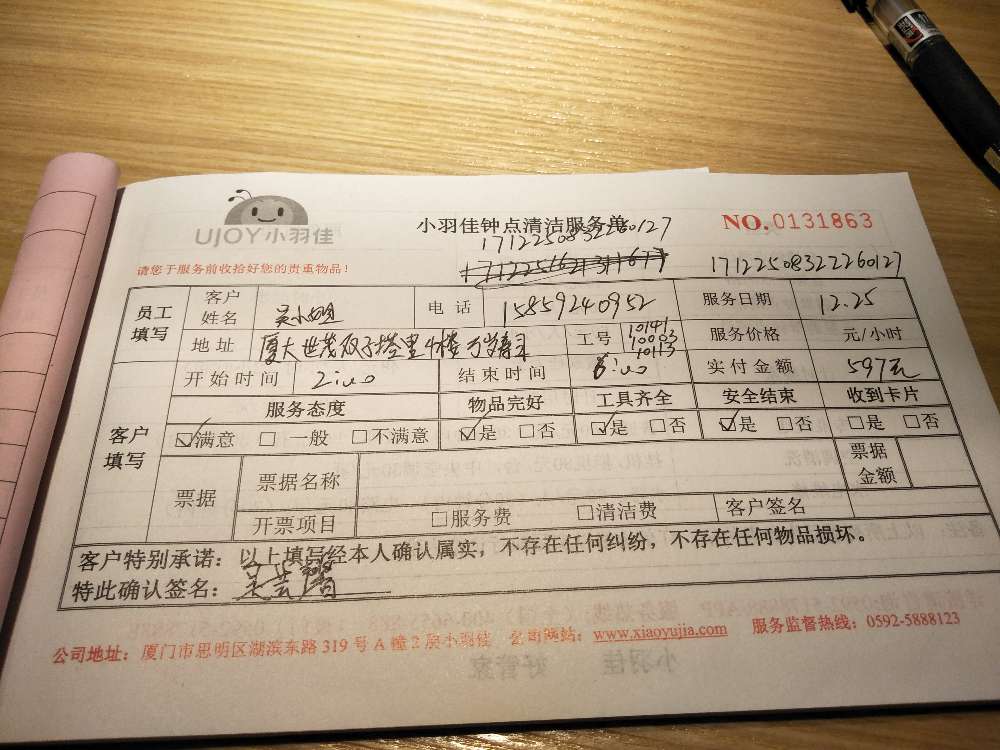 UJOY小羽佳
小羽佳钟点清洁服务单
NO.0131863
17122508322260127
请您于服务前收拾好您的贵重物品！
17122508322260127
员工填写 客户姓名 吴小姐 电话 15859240952 服务日期 12.25
地址 厦大世茂双子塔里4楼 工号 10141 10003 10113 服务价格 元/小时
客户填写 开始时间 2:00 结束时间 6:00 实付金额 597元
服务态度 物品完好 工具齐全 安全结束 收到卡片
☑满意 □一般 □不满意 ☑是 □否 ☑是 □否 ☑是 □否 □是 □否
票据 票据名称 票据金额
开票项目 □服务费 □清洁费 客户签名
客户特别承诺：以上填写经本人确认属实，不存在任何纠纷，不存在任何物品损坏。
特此确认签名：
公司地址：厦门市思明区湖滨东路319号A幢2层小羽佳 公司网站：www.xiaoyujia.com 服务监督热线：0592-5888123